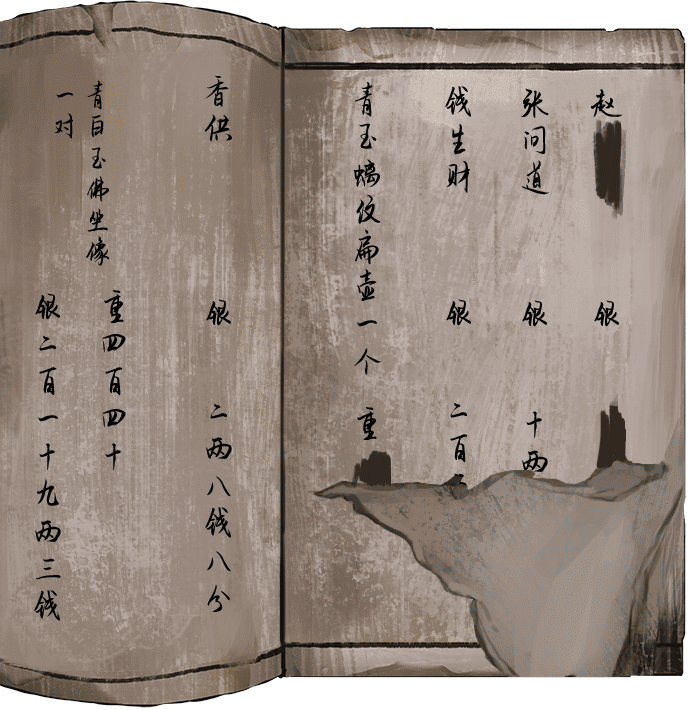 赵 银
张问道 银 十两
钱生财 银 二百
青玉螭纹扁壶一个 重
香供 银 二两八钱八分
青白玉佛坐像
一对
重四百四十
银二百一十九两三钱